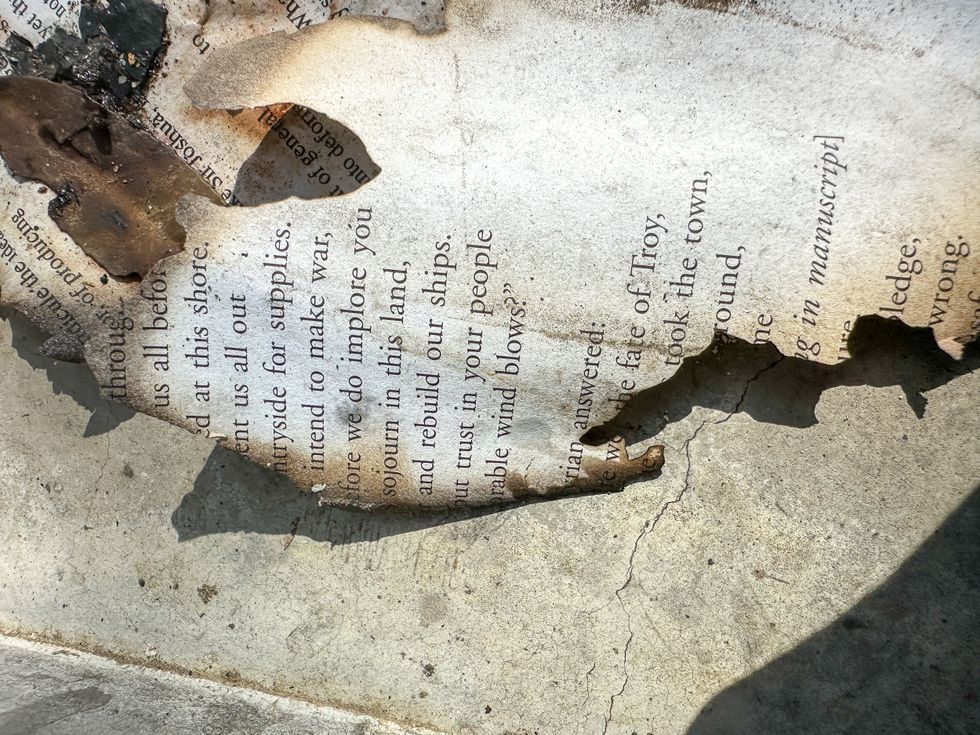 yet th
not
to
Sir Joshua,
of general
into deform
dicule the idea
of producing
throug
us all befor
ed at this shore.
ent us all out
ntryside for supplies.
intend to make war,
fore we do implore you
sojourn in this land,
and rebuild our ships.
ut trust in your people
rable wind blows?”
rian answered:
re we he fate of Troy,
took the town,
round,
ne
g in manuscript]
ledge,
wrong.